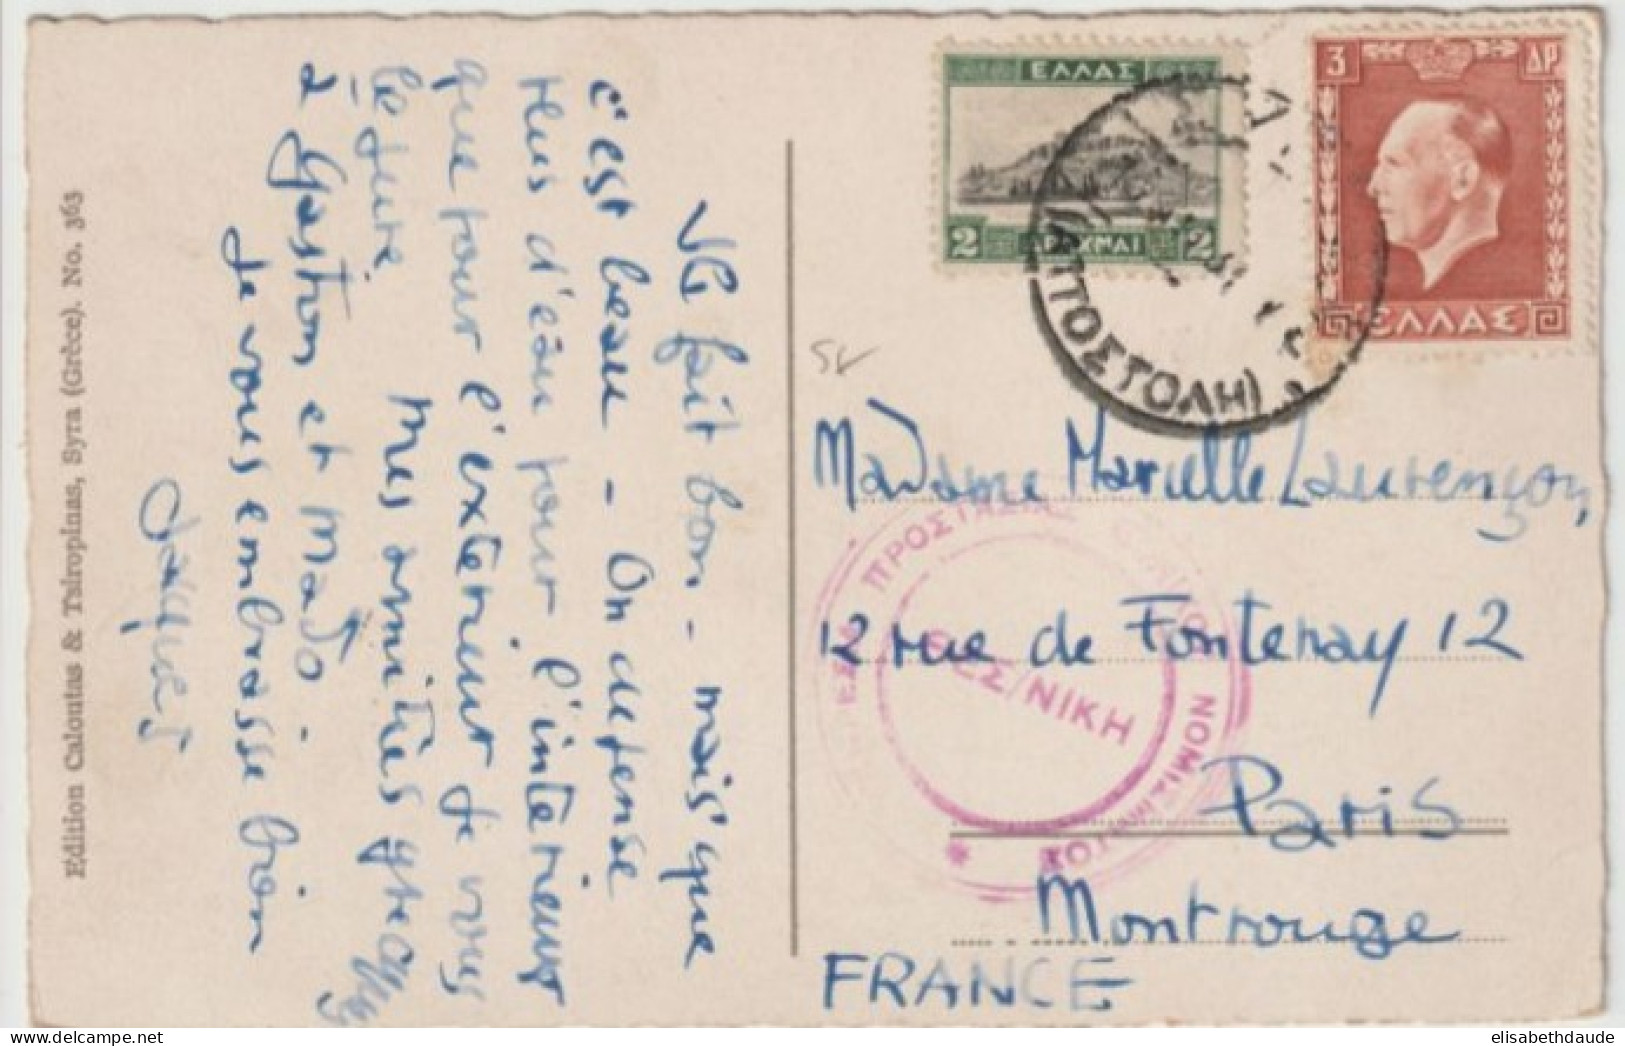 Edition Caloutas & Thiropinas, Syra (Grèce). No. 363
fait bon - mais que
c'est beau - On dépense
plus d'eau pour l'intérieur
que pour l'extérieur je vous
le jure Mes amitiés
à Gaston et Mado -
Je vous embrasse bien
Jacques
ΕΛΛΑΣ
2 ΔΡΑΧΜΑΙ 2
3 ΔΡ
ΕΛΛΑΣ
(ΑΠΟΣΤΟΛΗ)
Madame Marcelle Laurençon,
12 rue de Fontenay 12
Paris
Montrouge
FRANCE
ΠΡΟΣΤΑΣΙΑ ΝΟΜΙΣΜΑΤΟΣ
ΘΕΣ/ΝΙΚΗ
elisabethdaude